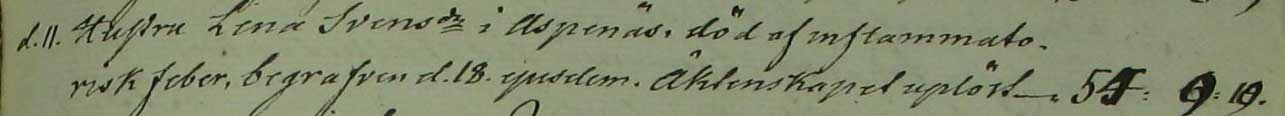 d. 11. Hustru Lena Svensdr i Aspenäs. död af inflammato-
risk feber, begrafven d. 18. ejusdem. Äktenskapet uplöst —. 54: 9: 19.